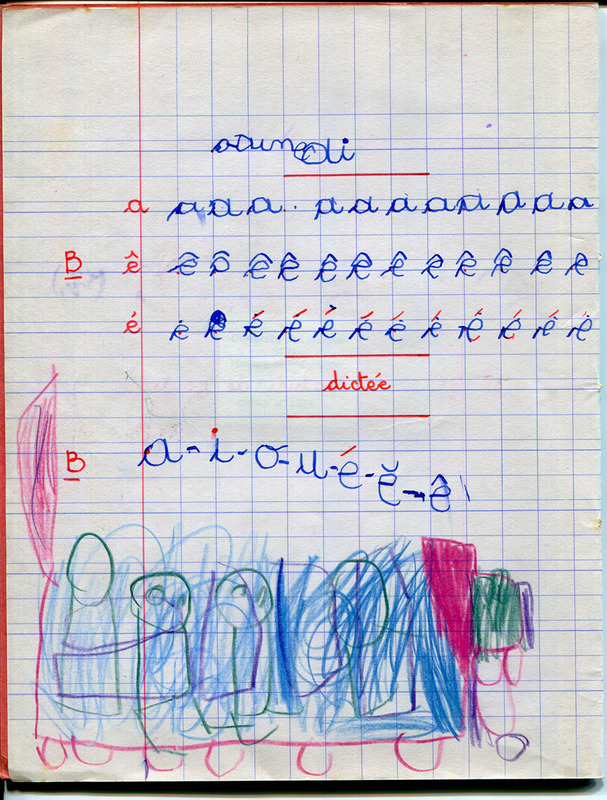 a a a a a a a a a a a a
B ê ê ê ê ê ê ê ê ê ê ê ê ê
é é é é é é é é é é é é é
dictée
B a - i - o - u - é - ĕ - ê